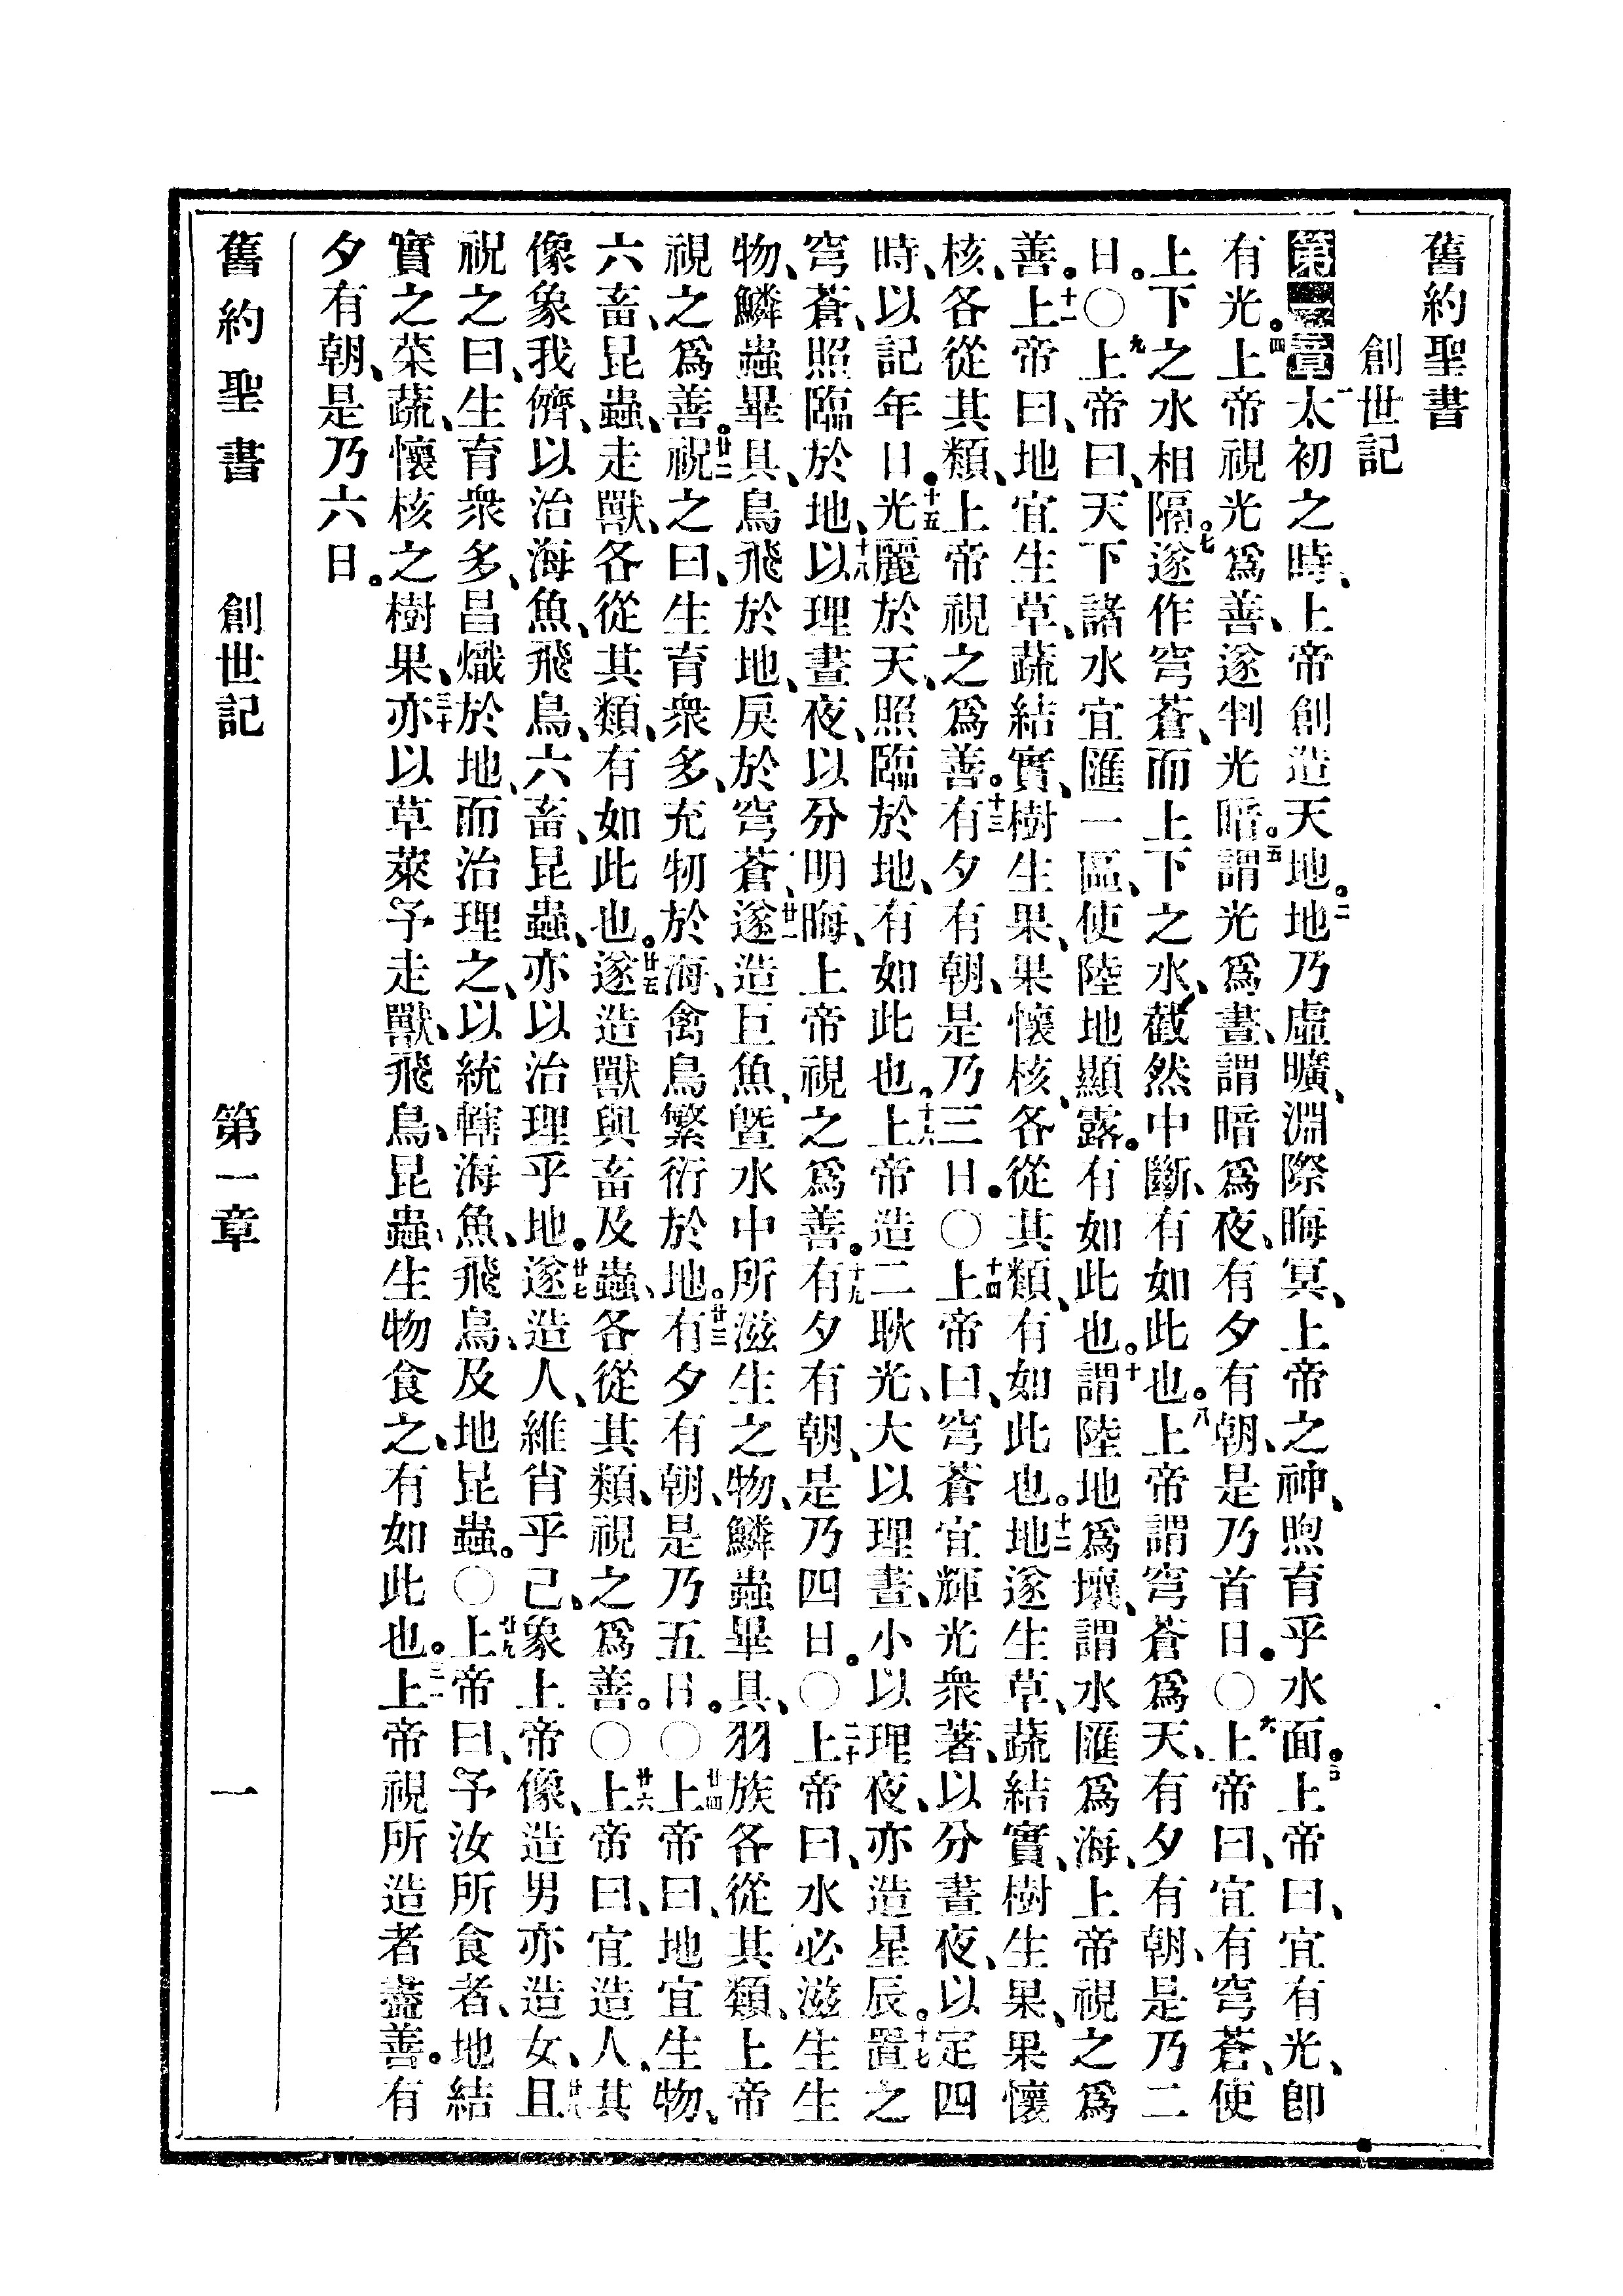 舊約聖書
創世記
第一章一太初之時、上帝創造天地。二地乃虛曠、淵際晦冥、上帝之神、煦育乎水面。三上帝曰、宜有光、卽
有光。四上帝視光爲善、遂判光暗。五謂光爲晝、謂暗爲夜、有夕有朝、是乃首日。〇六上帝曰、宜有穹蒼、使
上下之水相隔。七遂作穹蒼、而上下之水、截然中斷、有如此也。八上帝謂穹蒼爲天、有夕有朝、是乃二
日。〇九上帝曰、天下諸水宜匯一區、使陸地顯露。有如此也。十謂陸地爲壤、謂水匯爲海、上帝視之爲
善。十一上帝曰、地宜生草、蔬結實、樹生果、果懷核、各從其類、有如此也。十二地遂生草、蔬結實、樹生果、果懷
核、各從其類、上帝視之爲善。十三有夕有朝、是乃三日。〇十四上帝曰、穹蒼宜輝光衆著、以分晝夜、以定四
時、以記年日。十五光麗於天、照臨於地、有如此也。十六上帝造二耿光、大以理晝、小以理夜、亦造星辰。十七置之
穹蒼、照臨於地、十八以理晝夜、以分明晦、上帝視之爲善。十九有夕有朝、是乃四日。〇二十上帝曰、水必滋生生
物、鱗蟲畢具、鳥飛於地、戾於穹蒼、廿一遂造巨魚、曁水中所滋生之物、鱗蟲畢具、羽族各從其類、上帝
視之爲善。廿二祝之曰、生育衆多、充牣於海、禽鳥繁衍於地。廿三有夕有朝、是乃五日。〇廿四上帝曰、地宜生物、
六畜、昆蟲、走獸、各從其類、有如此也。廿五遂造獸與畜及蟲、各從其類、視之爲善。〇廿六上帝曰、宜造人、其
像象我儕、以治海魚、飛鳥、六畜、昆蟲、亦以治理乎地。廿七遂造人、維肖乎己、象上帝像、造男亦造女、廿八且
祝之曰、生育衆多、昌熾於地、而治理之、以統轄海魚、飛鳥、及地昆蟲。〇廿九上帝曰、予汝所食者、地結
實之菜蔬、懷核之樹果、三十亦以草萊予走獸、飛鳥、昆蟲、生物食之、有如此也。三一上帝視所造者盡善。有
夕有朝、是乃六日。
舊約聖書 創世記 第一章 一